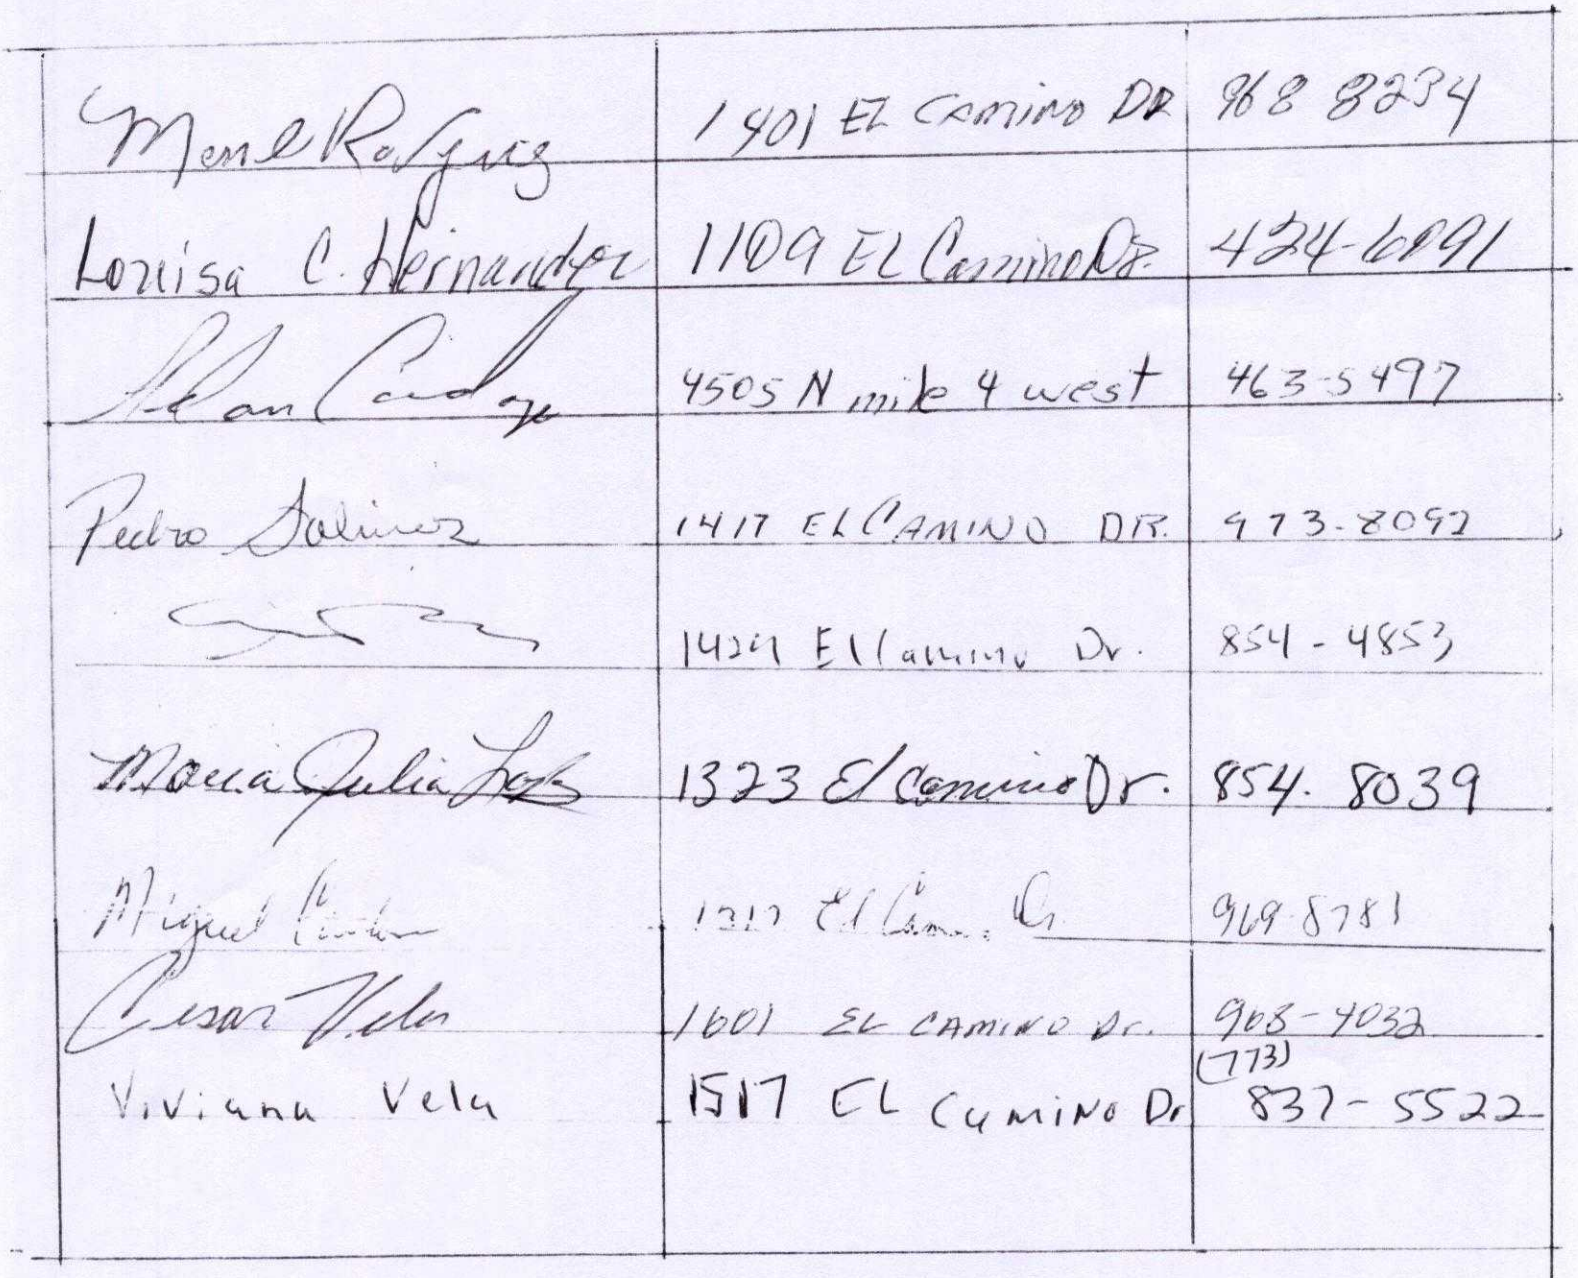 Manuel Rodriguez 1401 EL CAMINO DR 968 8234
Louisa C. Hernandez 1109 EL Camino Dr. 424-6991
4505 N mile 4 west 463-5497
Pedro Salinas 1417 EL CAMINO DR. 973-8092
El Camino Dr. 854-4853
Maria Julia 1323 El Camino Dr. 854.8039
Miguel El 969-8781
Cesar Vela 1601 EL CAMINO Dr. 968-4032
(773)
Viviana Vela 1517 EL CAMINO Dr 837-5522